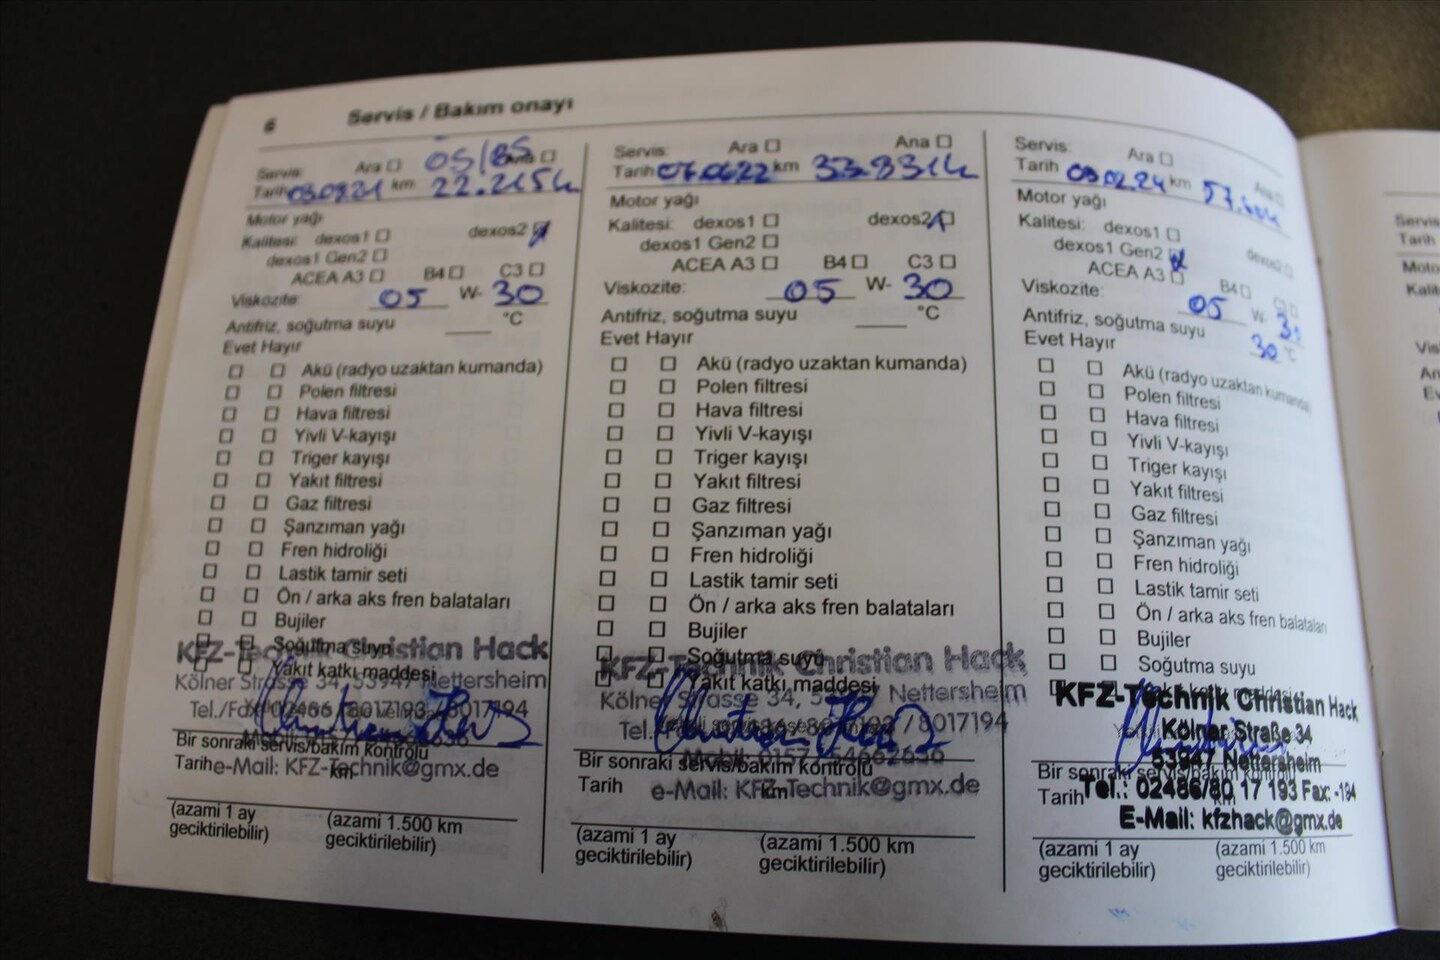 6 Servis / Bakım onayı
Servis: Ara 05/85 Ana
Tarih km 22.215k
Motor yağı
Kalitesi: dexos1 dexos2
dexos1 Gen2
ACEA A3 B4 C3
Viskozite: 05 W- 30
Antifriz, soğutma suyu °C
Evet Hayır
Akü (radyo uzaktan kumanda)
Polen filtresi
Hava filtresi
Yivli V-kayışı
Triger kayışı
Yakıt filtresi
Gaz filtresi
Şanzıman yağı
Fren hidroliği
Lastik tamir seti
Ön / arka aks fren balataları
Bujiler
Soğutma suyu
KFZ-Technik Christian Hack
Yakıt katkı maddesi
Kölner Straße 34, 53947 Nettersheim
Tel./Fax 02486 / 8017193 / 8017194
Bir sonraki servis/bakım kontrolü
Tarih km
e-Mail: KFZ-Technik@gmx.de
(azami 1 ay (azami 1.500 km
geciktirilebilir) geciktirilebilir)
Servis: Ara Ana
Tarih km
Motor yağı
Kalitesi: dexos1 dexos2
dexos1 Gen2
ACEA A3 B4 C3
Viskozite: 05 W- 30
Antifriz, soğutma suyu °C
Evet Hayır
Akü (radyo uzaktan kumanda)
Polen filtresi
Hava filtresi
Yivli V-kayışı
Triger kayışı
Yakıt filtresi
Gaz filtresi
Şanzıman yağı
Fren hidroliği
Lastik tamir seti
Ön / arka aks fren balataları
Bujiler
Soğutma suyu
KFZ-Technik Christian Hack
Yakıt katkı maddesi
Kölner Strasse 34, 53947 Nettersheim
Tel. 02486 / 8017193 / 8017194
Mobil: 0157 / 54662636
Bir sonraki servis/bakım kontrolü
Tarih km
e-Mail: KFZ-Technik@gmx.de
(azami 1 ay (azami 1.500 km
geciktirilebilir) geciktirilebilir)
Servis: Ara
Tarih 09.02.24 km Ana
Motor yağı
Kalitesi: dexos1
dexos1 Gen2 dexos2
ACEA A3 B4
Viskozite: 05 W- 30
Antifriz, soğutma suyu 30 °C
Evet Hayır
Akü (radyo uzaktan kumanda)
Polen filtresi
Hava filtresi
Yivli V-kayışı
Triger kayışı
Yakıt filtresi
Gaz filtresi
Şanzıman yağı
Fren hidroliği
Lastik tamir seti
Ön / arka aks fren balataları
Bujiler
Soğutma suyu
KFZ-Technik Christian Hack
Kölner Straße 34
53947 Nettersheim
Bir sonraki servis/bakım kontrolü
Tarih km
Tel.: 02486/80 17 193 Fax: -194
E-Mail: kfzhack@gmx.de
(azami 1 ay (azami 1.500 km
geciktirilebilir) geciktirilebilir)
Servis
Tarih